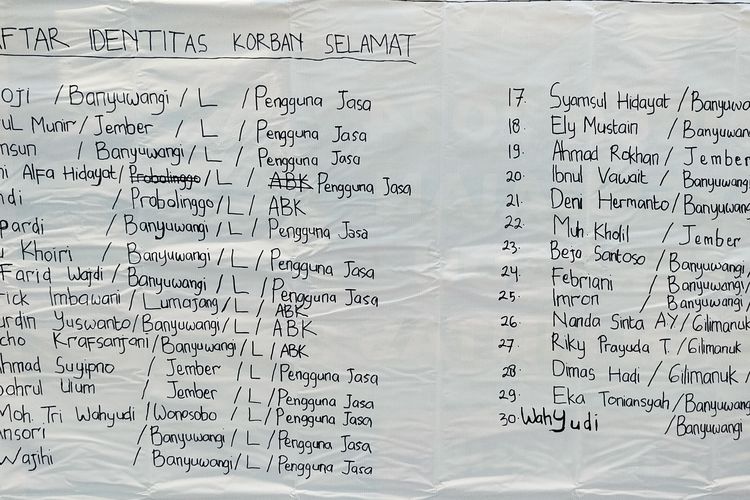 AFTAR IDENTITAS KORBAN SELAMAT
oji / Banyuwangi / L / Pengguna Jasa
ul Munir / Jember / L / Pengguna Jasa
nsun / Banyuwangi / L / Pengguna Jasa
ni Alfa Hidayat / Probolinggo / L / ABK Pengguna Jasa
ndi / Probolinggo / L / ABK
pardi / Banyuwangi / L / Pengguna Jasa
u Khoiri / Banyuwangi / L / Pengguna Jasa
Farid Wajdi / Banyuwangi / L / Pengguna Jasa
rick Imbawani / Lumajang / L / ABK
urdin Yuswanto / Banyuwangi / L / ABK
cho Krafsanjani / Banyuwangi / L / ABK
hmad Suyipno / Jember / L / Pengguna Jasa
ahrul Ulum / Jember / L / Pengguna Jasa
Moh. Tri Wahyudi / Wonosobo / L / Pengguna Jasa
ansori / Banyuwangi / L / Pengguna Jasa
Wajihi / Banyuwangi / L / Pengguna Jasa
17. Syamsul Hidayat / Banyuwa
18. Ely Mustain / Banyuwan
19. Ahmad Rokhan / Jember
20. Ibnul Vawait / Banyuwangi
21. Deni Hermanto / Banyuwang
22. Muh. Kholil / Jember
23. Bejo Santoso / Banyuwangi
24. Febriani / Banyuwangi /
25. Imron / Banyuwangi /
26. Nanda Sinta AY / Gilimanuk
27. Riky Prayuda T. / Gilimanuk
28. Dimas Hadi / Gilimanuk /
29. Eka Toniansyah / Banyuwang
30. Wahyudi / Banyuwangi